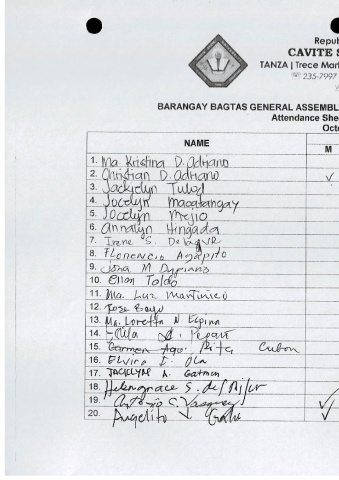 Repu
CAVITE S
TANZA | Trece Mar
235-7997
BARANGAY BAGTAS GENERAL ASSEMBL
Attendance Shee
Octo
NAME
M
1. Ma. Kristina D. Adriano
2. Christian D. Adriano ✓
3. Jackyelyn Tulod
4. Jocelyn Macatangay
5. Jocelyn Mejio
6. Annalyn Hingada
7. Irene S. Dela
8. Florencio Agapito
9. M
10. Ellan Toldo
11. Ma. Luz Martinico
12. Jose
13. Ma. Loretta N Espina
14.
15. Carmen Cubon
16. Elvira I. Ola
17. A. Gatmen
18. Helengrace S. del
19. Antonio C. Vasquez ✓
20. Angelito ✓